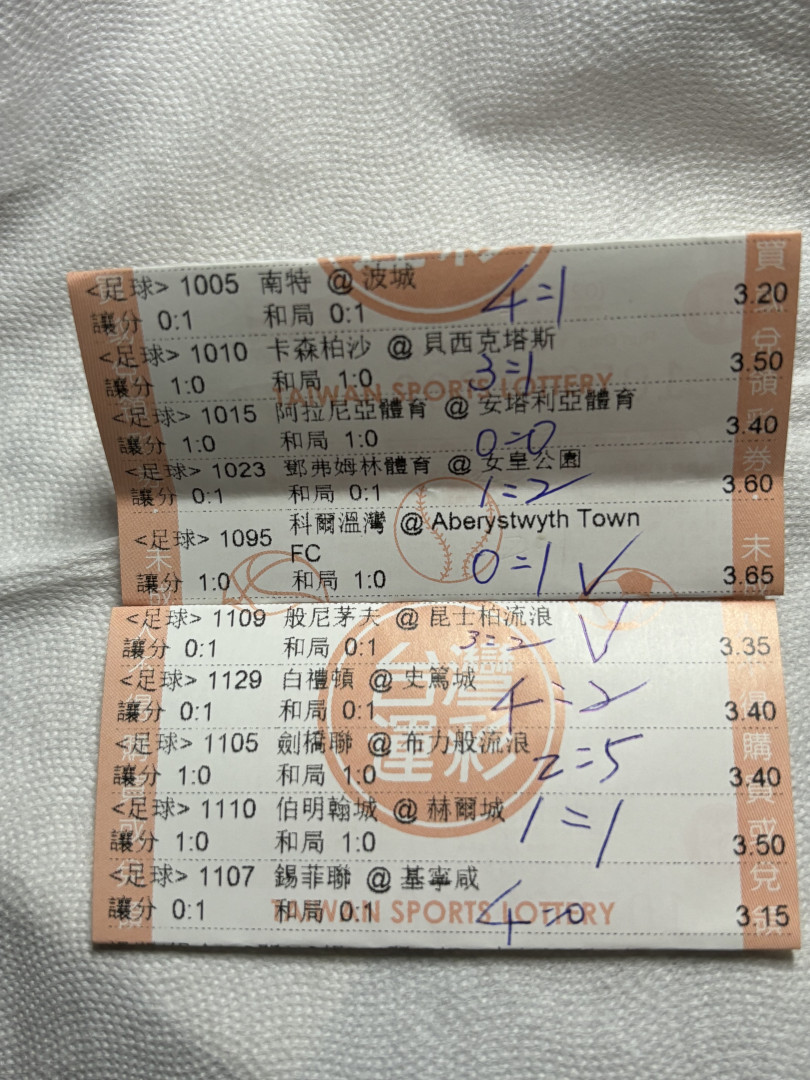 <足球> 1005 南特 @ 波城
讓分 0:1 和局 0:1 4=1 3.20
<足球> 1010 卡森柏沙 @ 貝西克塔斯
讓分 1:0 和局 1:0 3=1 3.50
TAIWAN SPORTS LOTTERY
<足球> 1015 阿拉尼亞體育 @ 安塔利亞體育
讓分 1:0 和局 1:0 0=0 3.40
<足球> 1023 鄧弗姆林體育 @ 女皇公園
讓分 0:1 和局 0:1 1=2 3.60
<足球> 1095 科爾溫灣 @ Aberystwyth Town
FC
讓分 1:0 和局 1:0 0=1 ✓ 3.65
<足球> 1109 般尼茅夫 @ 昆士柏流浪
讓分 0:1 和局 0:1 3=2 ✓ 3.35
<足球> 1129 白禮頓 @ 史篤城
讓分 0:1 和局 0:1 4=2 3.40
台灣
運彩
<足球> 1105 劍橋聯 @ 布力般流浪
讓分 1:0 和局 1:0 2=5 3.40
<足球> 1110 伯明翰城 @ 赫爾城
讓分 1:0 和局 1:0 1=1 3.50
<足球> 1107 錫菲聯 @ 基寧咸
讓分 0:1 和局 0:1 4=0 3.15
TAIWAN SPORTS LOTTERY